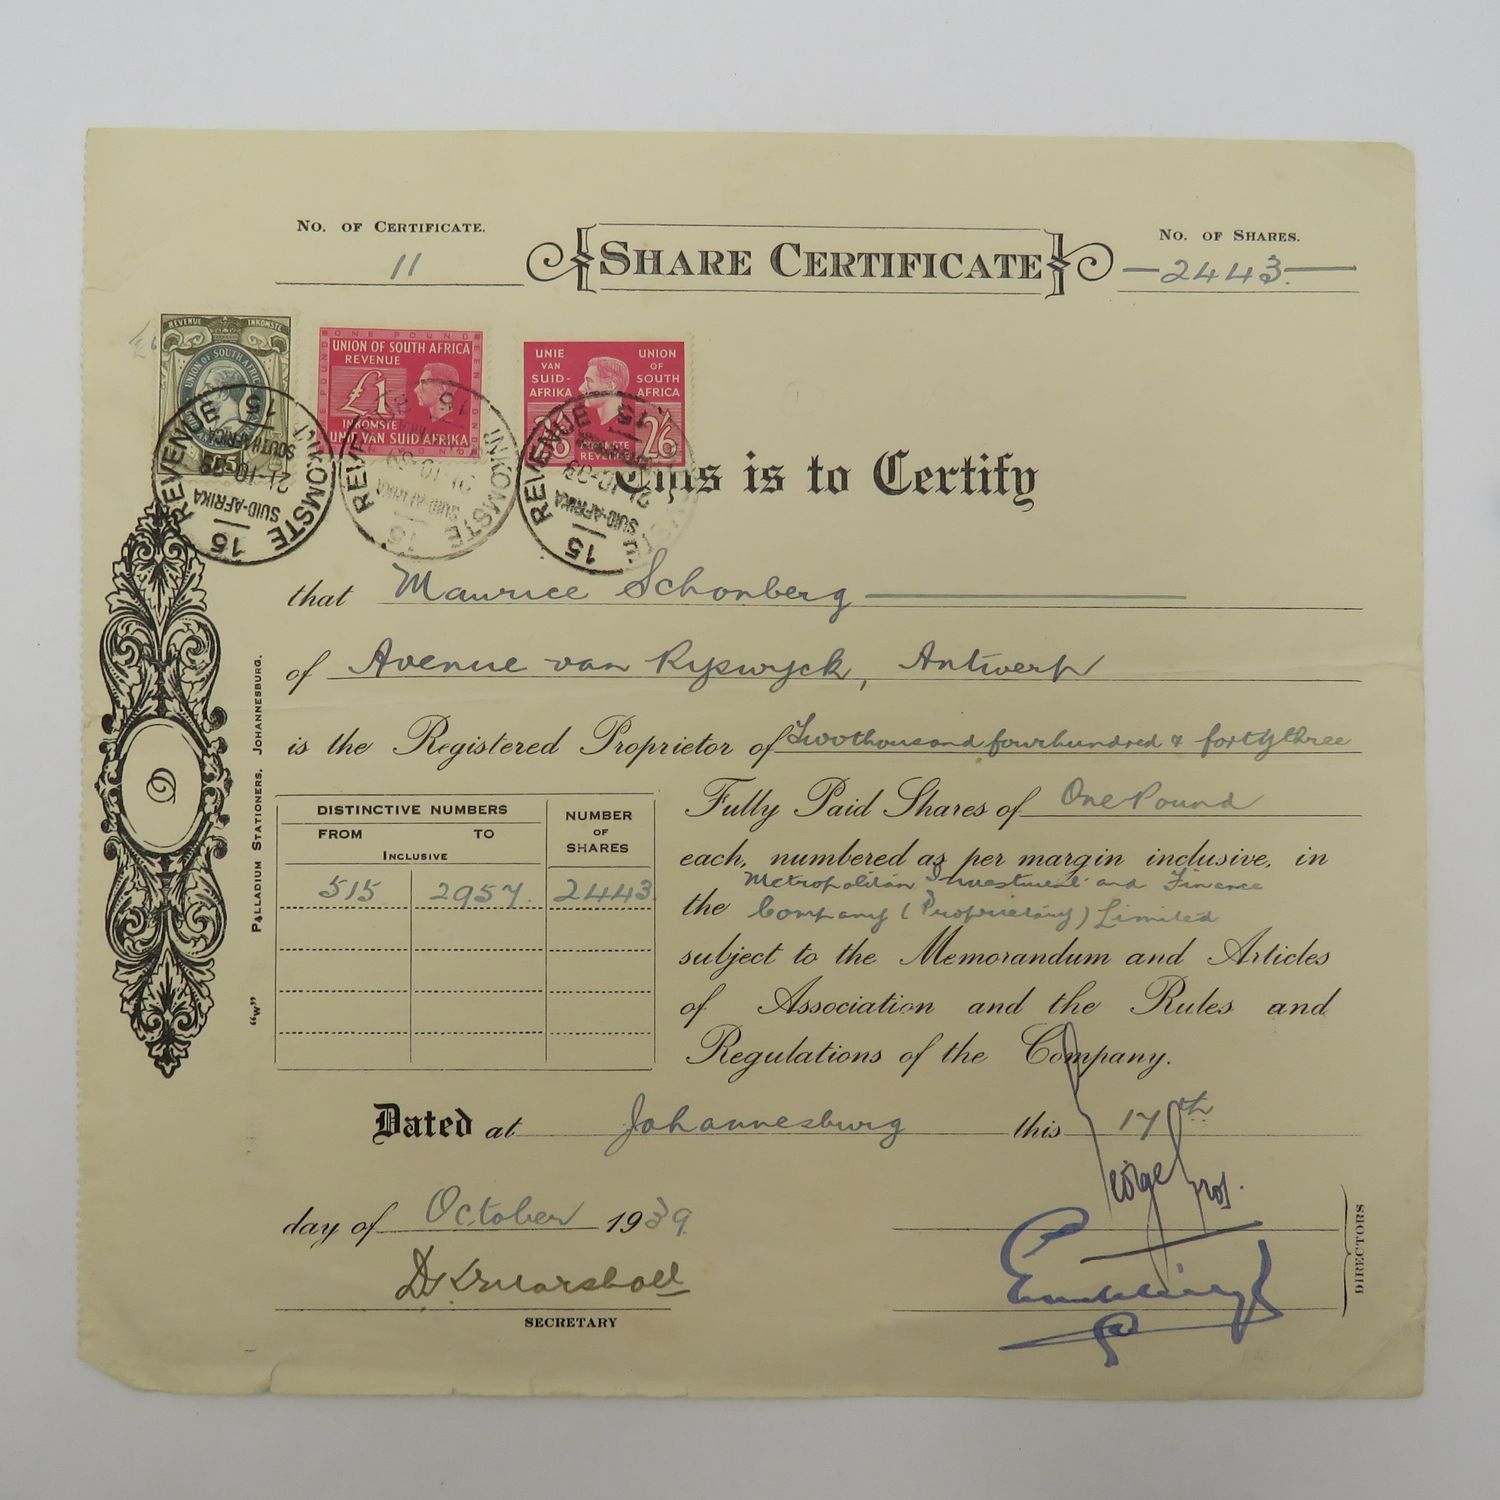 No. of Certificate.
11
Share Certificate
No. of Shares.
2443.
£
REVENUE INKOMSTE
UNION OF SOUTH AFRICA
ONE POUND
UNION OF SOUTH AFRICA
REVENUE
£1
INKOMSTE
UNIE VAN SUID AFRIKA
UNIE VAN SUID-AFRIKA
UNION OF SOUTH AFRICA
2/6
INKOMSTE
REVENUE
2/6
REVENUE INKOMSTE
15
SOUTH AFRICA
21-10-39
SUID-AFRIKA
15
REVENUE INKOMSTE
15
21-10-39
SUID-AFRIKA
15
REVENUE
15
21-10-39
SUID-AFRIKA
15
This is to Certify
that Maurice Schonberg
of Avenue van Rijswyck, Antwerp
is the Registered Proprietor of Twothousand fourhundred & fortythree
Fully Paid Shares of One Pound
each, numbered as per margin inclusive, in
the Metropolitan Investment and Finance
Company (Proprietary) Limited
subject to the Memorandum and Articles
of Association and the Rules and
Regulations of the Company.
DISTINCTIVE NUMBERS
FROM TO
Inclusive
NUMBER OF SHARES
515 2957. 2443
Palladium Stationers, Johannesburg.
"W"
Dated at Johannesburg this 17th
day of October 1939
Marshall
SECRETARY
George
DIRECTORS